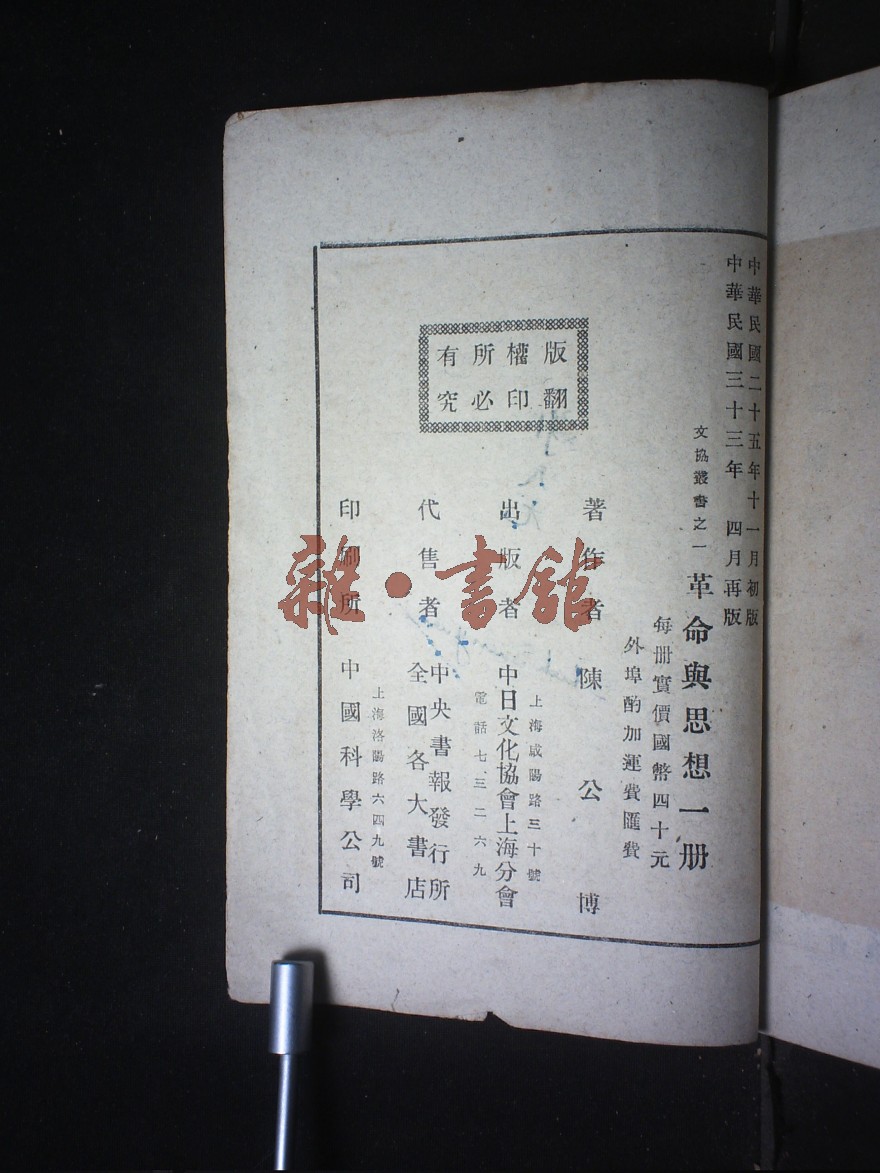 中華民國二十五年十一月初版
中華民國三十三年 四月再版
文協叢書之一
革命與思想一册
每册實價國幣四十元
外埠酌加運費匯費
版權所有
翻印必究
著作者 陳公博
出版者 中日文化協會上海分會
上海咸陽路三十號
電話七三二六九
代售者 中央書報發行所
全國各大書店
印刷所 中國科學公司
上海洛陽路六四九號
雜·書舘